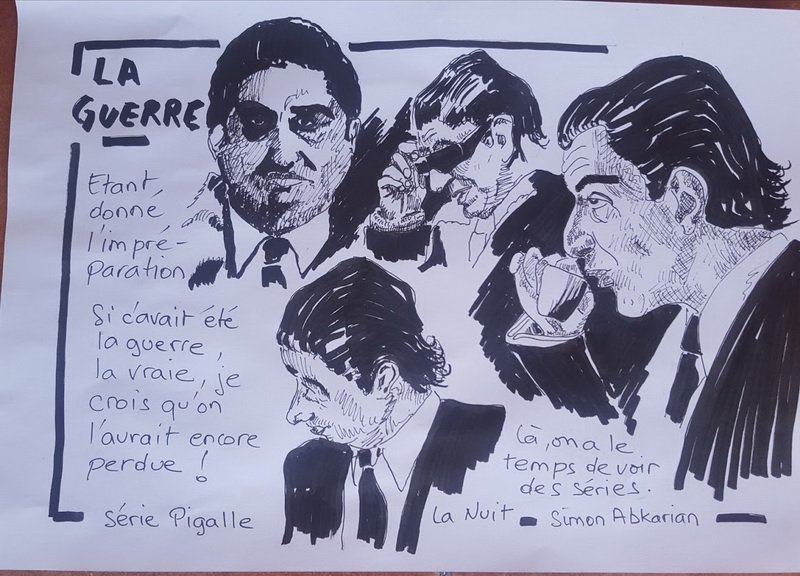 LA
GUERRE
Etant
donné
l'impré-
paration
Si c'avait été
la guerre,
la vraie, je
crois qu'on
l'aurait encore
perdue !
Série Pigalle
Là, on a le
temps de voir
des séries.
La Nuit - Simon Abkarian -